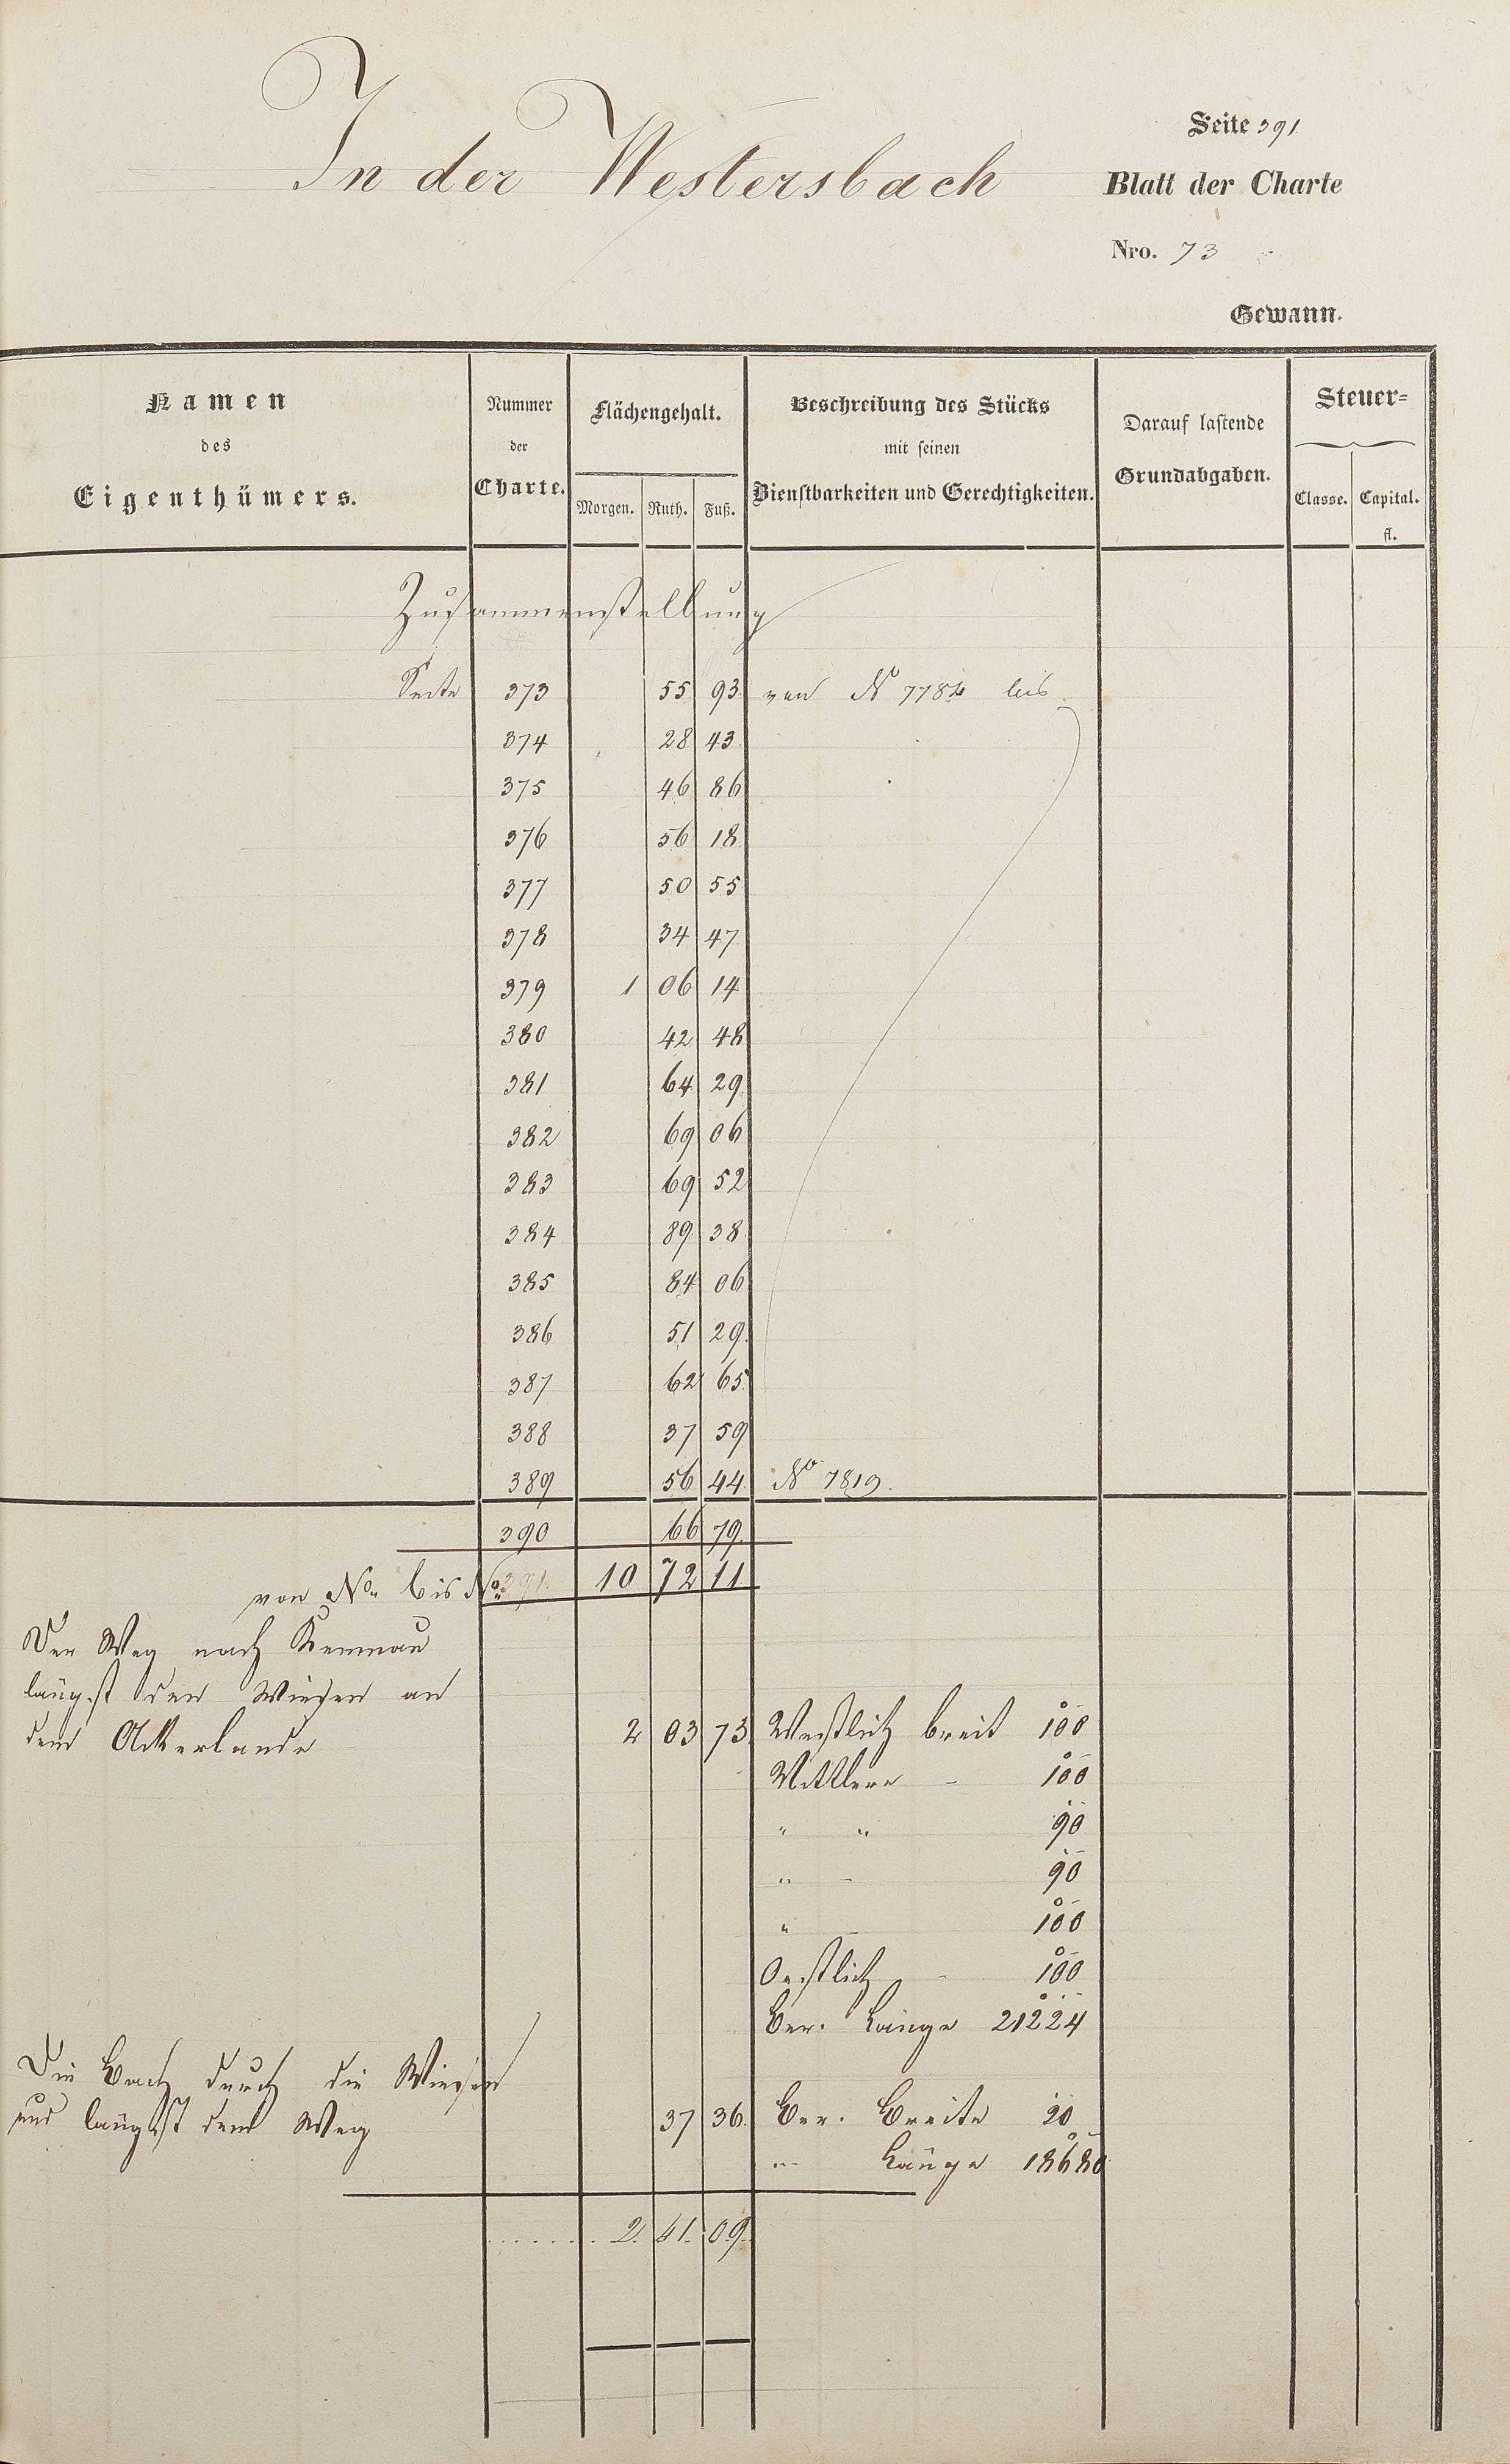 In der Westersbach
Seite 391
Blatt der Charte
Nro. 73
Gewann.
Namen des Eigenthümers.
Nummer der Charte.
Flächengehalt.
Morgen. Ruth. Fuß.
Beschreibung des Stücks mit seinen Dienstbarkeiten und Gerechtigkeiten.
Darauf lastende Grundabgaben.
Steuer=
Classe. Capital.
fl.
Zusammenstellung
Seite 373 55 93 von No 7784 bis
374 28 43
375 46 86
376 56 18
377 50 55
378 34 47
379 1 06 14
380 42 48
381 64 29
382 69 06
383 69 52
384 89 38
385 84 06
386 51 29.
387 62 65
388 37 59
389 56 44 No 7819.
390 66 79.
von No. bis No. 391. 10 72 11
Der Weg nach Kemnau
längst den Wiesen an
dem Ackerlande 2 03 73 Westlich breit 100
Mittlere - 100
" " 90
" - 90
" - 100
Oestlich - 100
Ber. Länge 21224
Die Bach durch die Wiesen
und längst dem Weg 37 36. Ber. Breite 20
" Länge 18680
. . . . . . . 2. 41. 09.